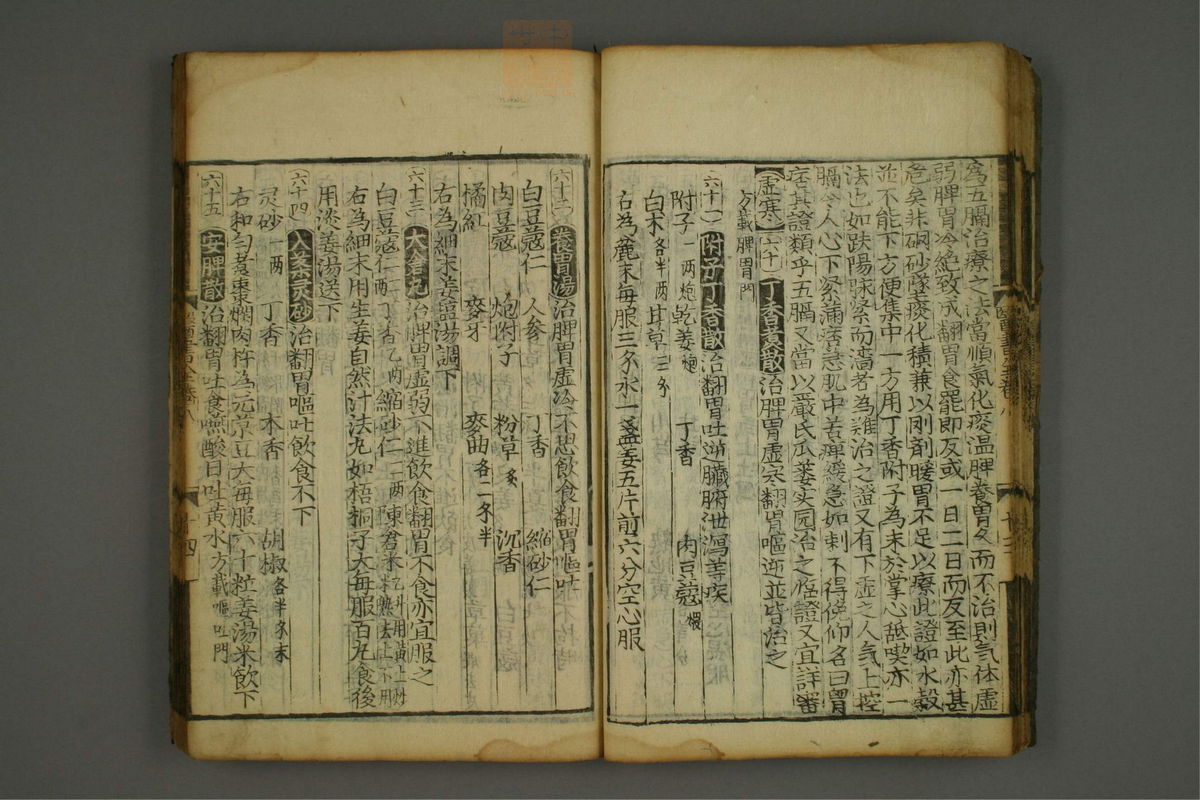 為五膈治療之法當順氣化痰温脾養胃久而不治則气体虚
弱脾胃冷絶致成翻胃食罷即反或一日二日而反至此亦甚
危矣非硇砂墜痰化積兼以剛剤暖胃不足以療此證如水穀
並不能下方便集中一方用丁香附子為末於掌心舐喫亦一
法也如趺陽脉緊而濇者為難治之證又有下虚之人气上控
膈令人心下堅滿痞急肌中苦痺緩急如刺不得俛仰名曰胃
痞其證類乎五膈又當以嚴氏瓜蔞实圓治之恠證又宜詳審
虚寒 六十 丁香煮散 治脾胃虚寒翻胃嘔逆並皆治之
方載脾胃門
六十一 附子丁香散 治翻胃吐逆臟腑泄瀉等疾
附子一两炮 乾姜炮 丁香 肉豆蔻煨
白朮各半两 甘草三分
右為麄末每服三分水一盞姜五片前六分空心服
六十二 養胃湯 治脾胃虚冷不思飲食翻胃嘔吐
白豆蔻仁 人參 丁香 縮砂仁
肉豆蔻 炮附子 粉草炙 沉香
橘紅 麥牙 麥曲各二分半
右為細末姜塩湯調下
六十三 大倉丸 治脾胃虚弱不進飲食翻胃不食亦宜服之
白豆蔻仁二两 丁香乙两 縮砂仁二两 陳倉米乙升用黄土炒米熟去土不用
右為細末用生姜自然汁法丸如梧桐子大每服百丸食後
用淡姜湯送下
六十四 入藥灵砂 治翻胃嘔吐飲食不下
灵砂一两 丁香 木香 胡椒各半分末
右和匀煮棗爛肉杵為元菉豆大每服六十粒姜湯米飲下
六十五 安脾散 治翻胃吐食嚥酸日吐黄水方載嘔吐門